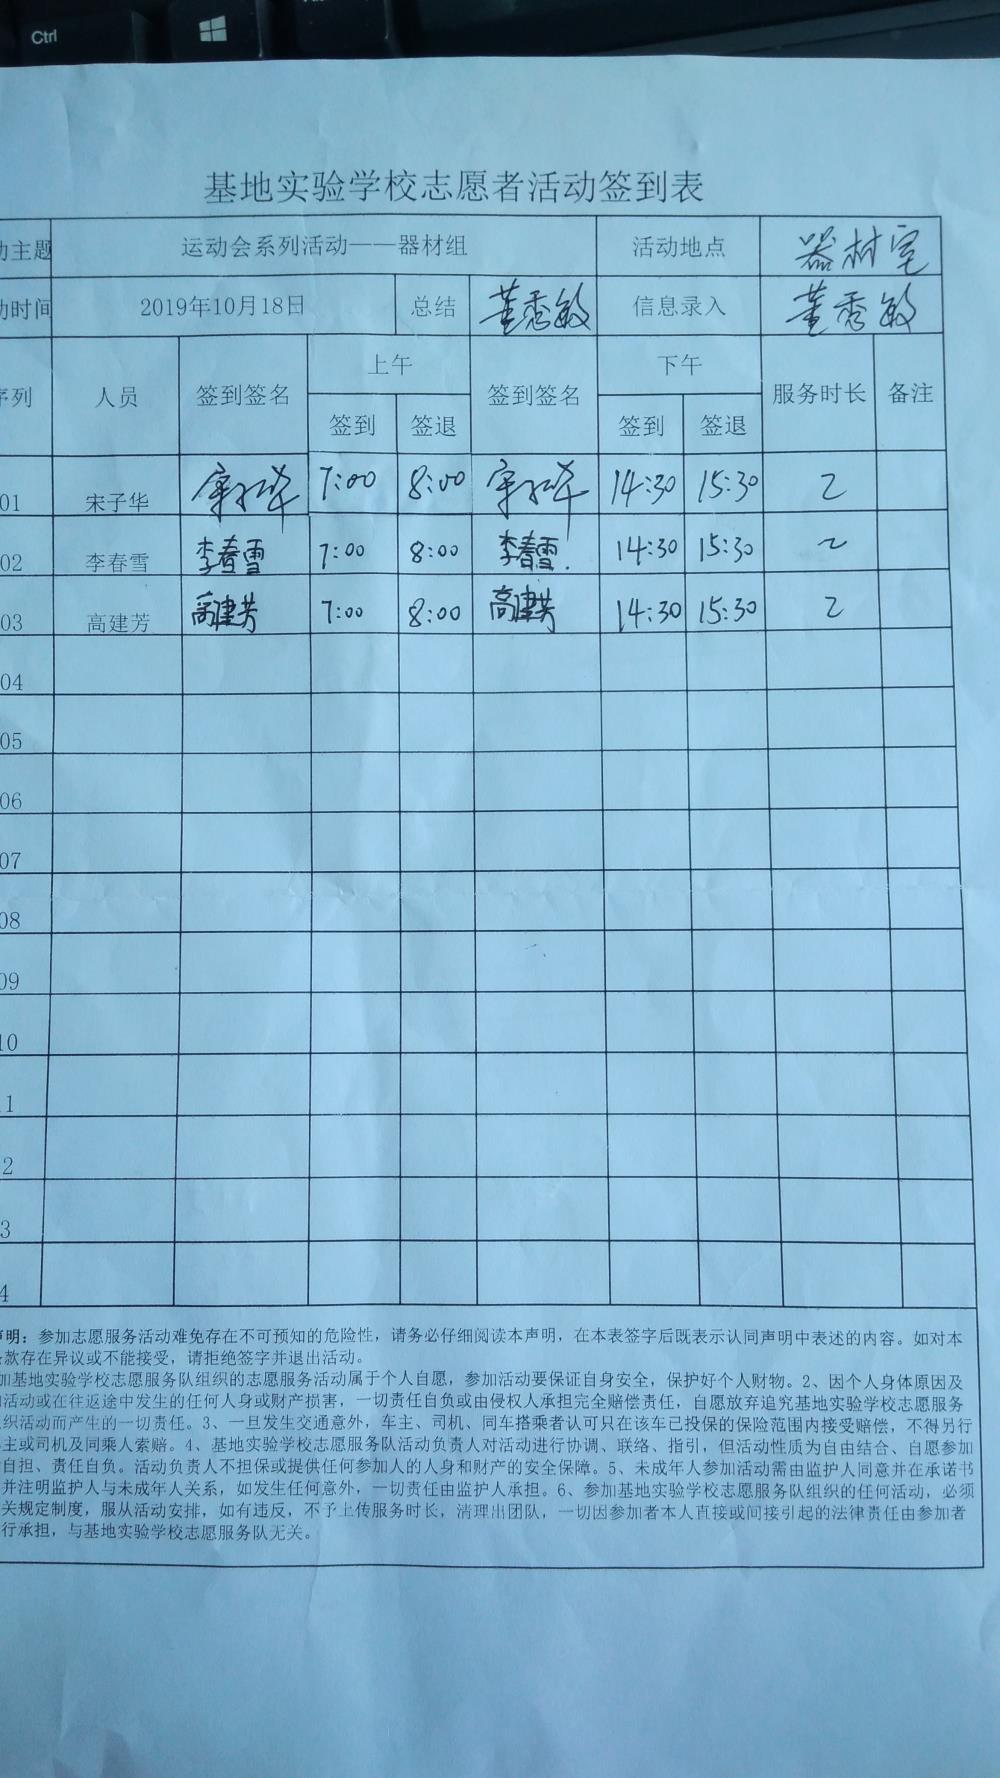 Ctrl
基地实验学校志愿者活动签到表
动主题 运动会系列活动——器材组 活动地点 器材室
动时间 2019年10月18日 总结 董秀敏 信息录入 董秀敏
序列 人员 签到签名 上午 签到签名 下午 服务时长 备注
签到 签退 签到 签退
01 宋子华 宋子华 7:00 8:00 宋子华 14:30 15:30 2
02 李春雪 李春雪 7:00 8:00 李春雪. 14:30 15:30 2
03 高建芳 高建芳 7:00 8:00 高建芳 14:30 15:30 2
04
05
06
07
08
09
10
1
2
3
4
声明：参加志愿服务活动难免存在不可预知的危险性，请务必仔细阅读本声明，在本表签字后既表示认同声明中表述的内容。如对本
条款存在异议或不能接受，请拒绝签字并退出活动。
加基地实验学校志愿服务队组织的志愿服务活动属于个人自愿，参加活动要保证自身安全，保护好个人财物。2、因个人身体原因及
活动或在往返途中发生的任何人身或财产损害，一切责任自负或由侵权人承担完全赔偿责任，自愿放弃追究基地实验学校志愿服务
织活动而产生的一切责任。3、一旦发生交通意外，车主、司机、同车搭乘者认可只在该车已投保的保险范围内接受赔偿，不得另行
主或司机及同乘人索赔。4、基地实验学校志愿服务队活动负责人对活动进行协调、联络、指引，但活动性质为自由结合、自愿参加
自担、责任自负。活动负责人不担保或提供任何参加人的人身和财产的安全保障。5、未成年人参加活动需由监护人同意并在承诺书
并注明监护人与未成年人关系，如发生任何意外，一切责任由监护人承担。6、参加基地实验学校志愿服务队组织的任何活动，必须
关规定制度，服从活动安排，如有违反，不予上传服务时长，清理出团队，一切因参加者本人直接或间接引起的法律责任由参加者
行承担，与基地实验学校志愿服务队无关。